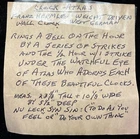 RINGS A BELL ON THE HOUR
BY A SERIES OF STRIKES
AND THE ½ HOUR W/1 STRIKE
UNDER THE WATCHFUL EYE
OF ATLAS WHO ADORNS EACH
OF THESE BEAUTIFUL CLOCKS.
MEAS. TALL × 10½ WIDE
BY 5½ DEEP
NO LECK SHY $100 (TO DO AS YOU
FEEL OR DO YOUR OWN THING